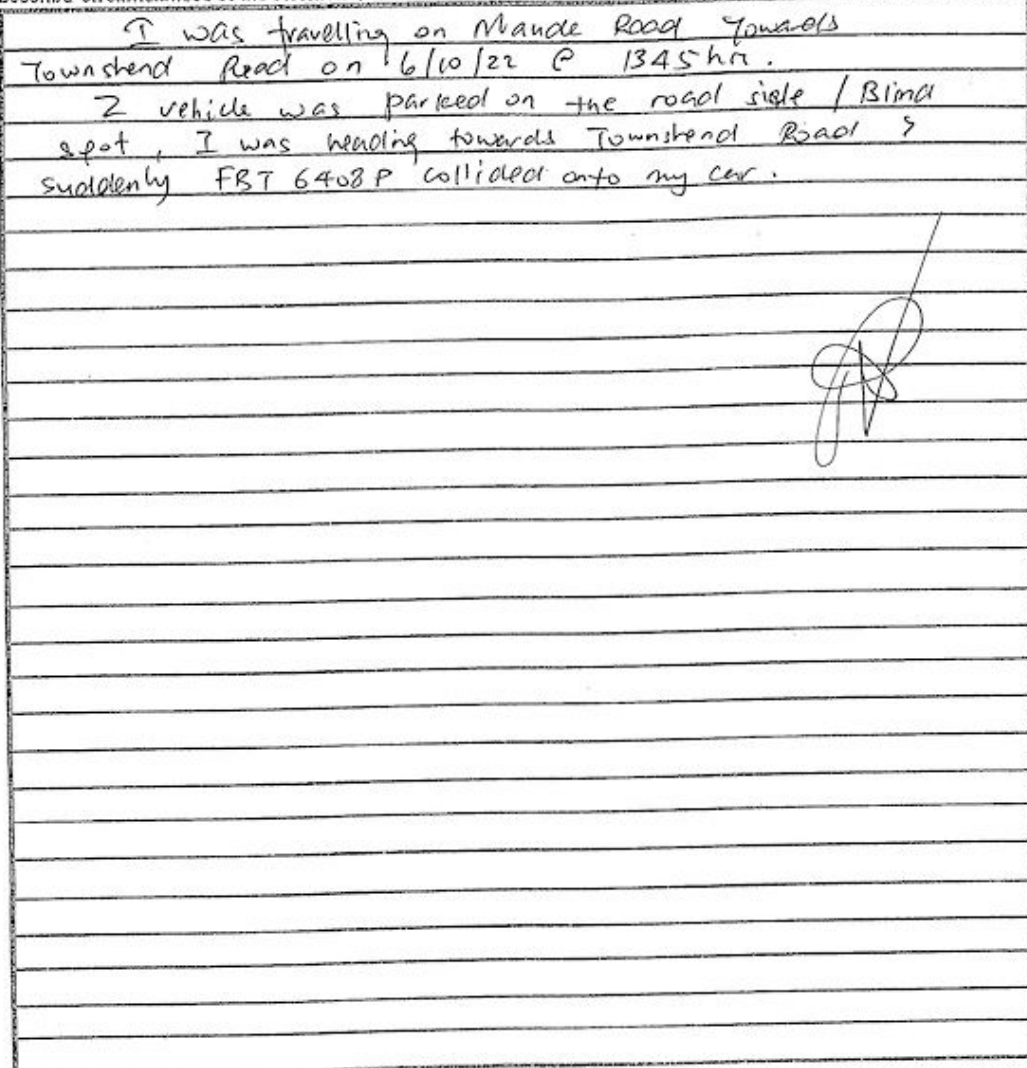 I was travelling on Maude Road Towards
Townshend Road on 6/10/22 @ 1345 hrs.
2 vehicle was parked on the road side / Blind
spot, I was heading towards Townshend Road &
suddenly FBT 6408P collided onto my car.